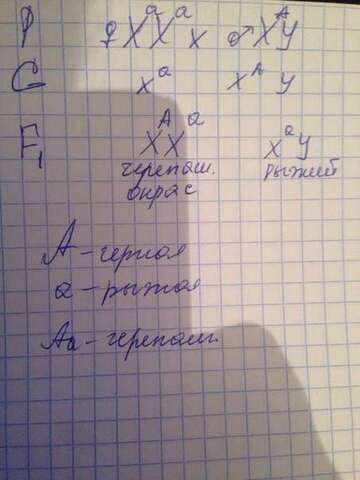 P ♀ XᵃXᵃ x ♂ XᴬY
G xᵃ xᴬ y
F₁ XᴬXᵃ XᵃY
черепаш. рыжий
окрас
A - черная
a - рыжая
Aa - черепаш.